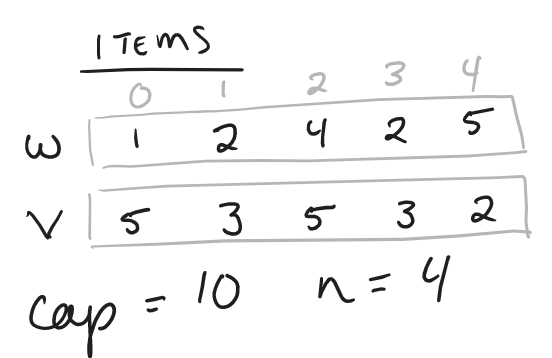 ITEMS
0 1 2 3 4
w 1 2 4 2 5
V 5 3 5 3 2
cap = 10 n = 4